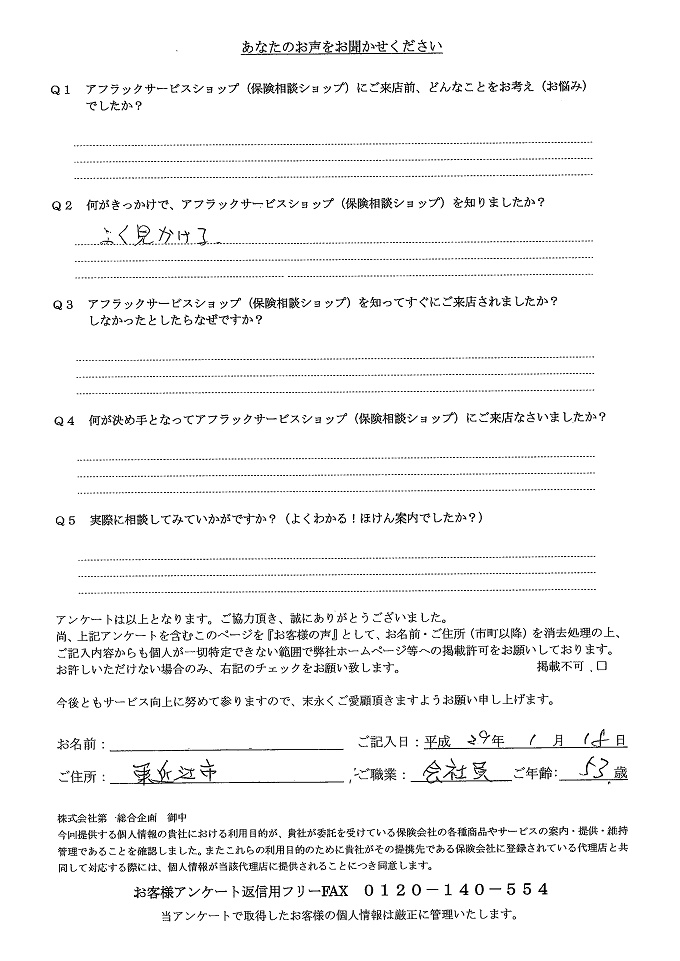 あなたのお声をお聞かせください
Q1 アフラックサービスショップ(保険相談ショップ)にご来店前、どんなことをお考え(お悩み)
でしたか?
Q2 何がきっかけで、アフラックサービスショップ(保険相談ショップ)を知りましたか?
よく見かける。
Q3 アフラックサービスショップ(保険相談ショップ)を知ってすぐにご来店されましたか?
しなかったとしたらなぜですか?
Q4 何が決め手となってアフラックサービスショップ(保険相談ショップ)にご来店なさいましたか?
Q5 実際に相談してみていかがですか?(よくわかる!ほけん案内でしたか?)
アンケートは以上となります。ご協力頂き、誠にありがとうございました。
尚、上記アンケートを含むこのページを『お客様の声』として、お名前・ご住所(市町以降)を消去処理の上、
ご記入内容からも個人が一切特定できない範囲で弊社ホームページ等への掲載許可をお願いしております。
お許しいただけない場合のみ、右記のチェックをお願い致します。 掲載不可 □
今後ともサービス向上に努めて参りますので、末永くご愛顧頂きますようお願い申し上げます。
お名前: ご記入日:平成 29年 1 月 18日
ご住所: 東近江市 ご職業: 会社員 ご年齢: 53歳
株式会社第一総合企画 御中
今回提供する個人情報の貴社における利用目的が、貴社が委託を受けている保険会社の各種商品やサービスの案内・提供・維持
管理であることを確認しました。またこれらの利用目的のために貴社がその提携先である保険会社に登録されている代理店と共
同して対応する際には、個人情報が当該代理店に提供されることにつき同意します。
お客様アンケート返信用フリーFAX 0120-140-554
当アンケートで取得したお客様の個人情報は厳正に管理いたします。